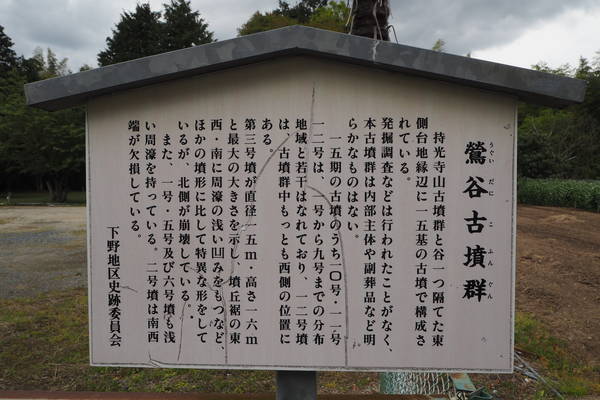 鶯谷古墳群
うぐいだにこふんぐん
持光寺山古墳群と谷一つ隔てた東
側台地縁辺に一五基の古墳で構成さ
れている。
発掘調査などは行われたことがなく、
本古墳群は内部主体や副葬品など明
らかなものはない。
一五期の古墳のうち一〇号・一一号
一二号は、一号から九号までの分布
地域と若干はなれており、一二号墳
は、古墳群中もっとも西側の位置に
ある。
第三号墳が直径一五m・高さ一六m
と最大の大きさを示し、墳丘裾の東
西・南に周濠の浅い凹みをもつなど、
ほかの墳形に比して特異な形をして
いるが、北側が崩壊している。
また、一号・五号及び六号墳も浅
い周濠を持っている。二号墳は南西
端が欠損している。
下野地区史跡委員会